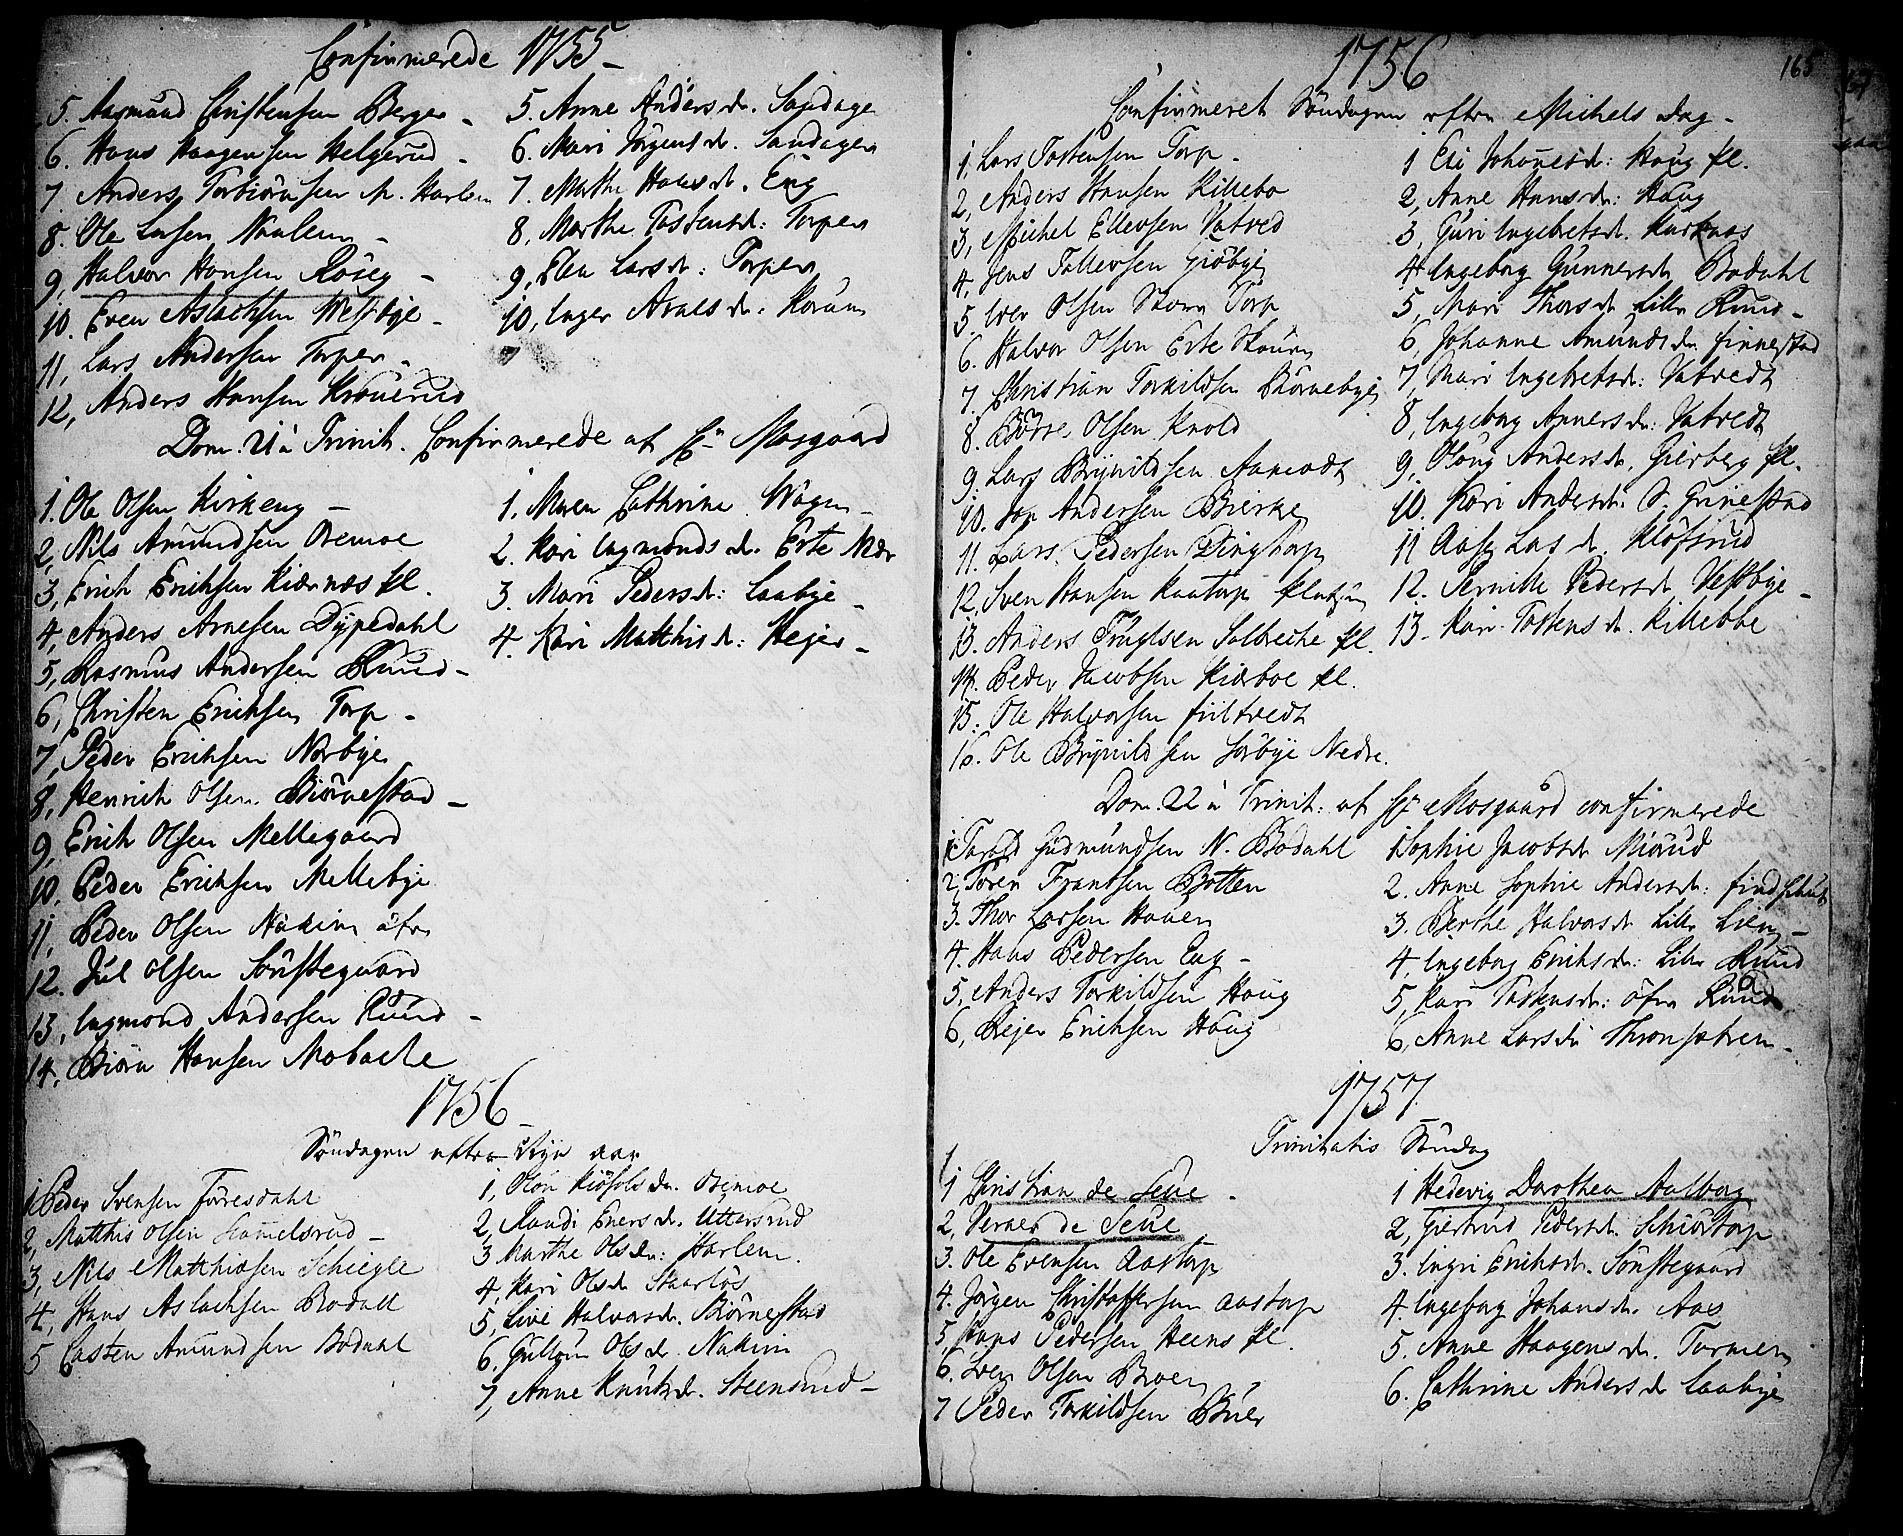 Confirmerede 1755
5. Aasmund Christensen Berger
6. Hans Haagensen Helgerud
7. Anders Torbiörnsen N. Harlem
8. Ole Larsen Naalem
9, Halvor Hansen Röseg
10. Even Aslachsen Westbye
11, Lars Andersen Torper
12, Anders Hansen Krouerud
5. Anne Anders dr. Sandager
6. Mari Jörgens dr. Sandager
7. Marthe Hans dr. Eng
8, Marthe Tostensdr: Torper
9, Elen Lars dr: Torper
10, Inger Arnes dr:
Dom. 21 à Trinit. Confirmerede af Hr Mosgaard
1. Ole Olsen Kirkeng
2, Nils Amundsen Oremoe
3, Erich Erichsen Kiærnæs pl.
4, Anders Arnesen Dÿpedahl
5, Rasmus Andersen Ruud
6, Christen Erichsen Torp
7, Peder Erichsen Norbye
8, Henrich Olsen Biörnestad
9, Erich Olsen Mellegaard
10, Peder Erichsen Mellebye
11, Peder Olsen Nakim öfre
12. Jul Olsen Sönstegaard
13, Ingmond Andersen Ruud
14, Biörn Hansen Mobache
1. Maren Cathrine Wagen
2. Kari Ingmonds dr. Erte Nær
3. Mari Peders dr: Laabye
4. Kari Matthis dr: Hejer
1756
Söndagen efter Nye aar
1 Peder Svensen Torresdahl
2, Matthis Olsen Hammelsrud
3, Nils Matthiasen Schiegle
4, Hans Aslachsen Bodall
5 Casten Amundsen Bodahl
1, Olou Kiöstols dr. Oremoe
2, Randi Eners dr. Uttersrud
3 Marthe Ols dr: Harlem
4, Kari Ols dr Skaarlös
5, Live Halvors dr. Biörnestad
6. Gulloug Ols dr. Nakim
7, Anne Knuts dr. Steensrud
165
1756
Confirmeret Söndagen efter Michels dag
1. Lars Tostensen Torp
2, Anders Hansen Killebo
3, Michel Ellevsen Vatved
4, Jens Tollevsen Giöbye
5. Iver Olsen Store Torp
6. Halvor Olsen Erte Skouen
7. Christian Torkildsen Biörnebye
8. Börre Olsen Knold
9 Lars Brynildsen Aamodt
10. Jon Andersen Bierke
11. Lars Pedersen Dingtorp
12, Sven Hansen Kaatorp pladsen
13. Anders Truglsen Solberche pl.
14. Peder Jacobsen Kiærboe pl.
15. Ole Halvorsen fiiltvedt
16. Ole Brynildsen Sörbye Nedre.
1 Eli Johanesdr: Haug pl.
2, Anne Hans dr: Haug
3, Guri Ingebretsdr. Karknas
4 Ingeborg Gunnersdr Bodahl
5, Mari Thorsdr Lille Ruud
6, Johanne Amunds dr. finnestad
7, Mari Ingebretsdr: Vatvedt
8, Ingeborg Anners dr: Vatvedt
9, Oloug Anders dr, Gierberg pl.
10. Kari Andersdr: S. Grinestad
11 Aase Lars dr. Klöfsrud
12. Pernille Pedersdr Vestbye
13. Kari Tostens dr. Killeboe
Dom. 22 à Trinit: af Hr Mosgaard confirmerede
1 Tarald Gudmundsen N. Bodahl
2, Toren Frantsen Botten
3. Thor Larsen Houen
4. Hans Pedersen Eng
5, Anders Torkildsen Houg
6, Rejer Erichsen Houg
1 Sophie Jacobsdr Miörud
2. Anne Sophie Andersdr:
3. Berthe Halvors dr Lille Lien
4, Ingeborg Erichs dr: Lille Ruud
5, Kari Tostens dr: öfre Ruud
6, Anne Lars dr Thronsetren
1757.
Trinitatis Söndag
1 Christian de Seue
2, Verner de Seue
3. Ole Evensen Aastorp
4. Jörgen Christoffersen Aastorp
5, Hans Pedersen Heens pl.
6. Iver Olsen Broen
7 Peder Torkildsen Buer
1 Hedevig Dorothea Aalborg
2, Giertrud Peders dr. Schiörtorp
3. Ingri Erichsdr. Sönstegaard
4. Ingeborg Johans dr. Aas
5. Anne Haagens dr. Turmen
6. Cathrine Anders dr Laabye